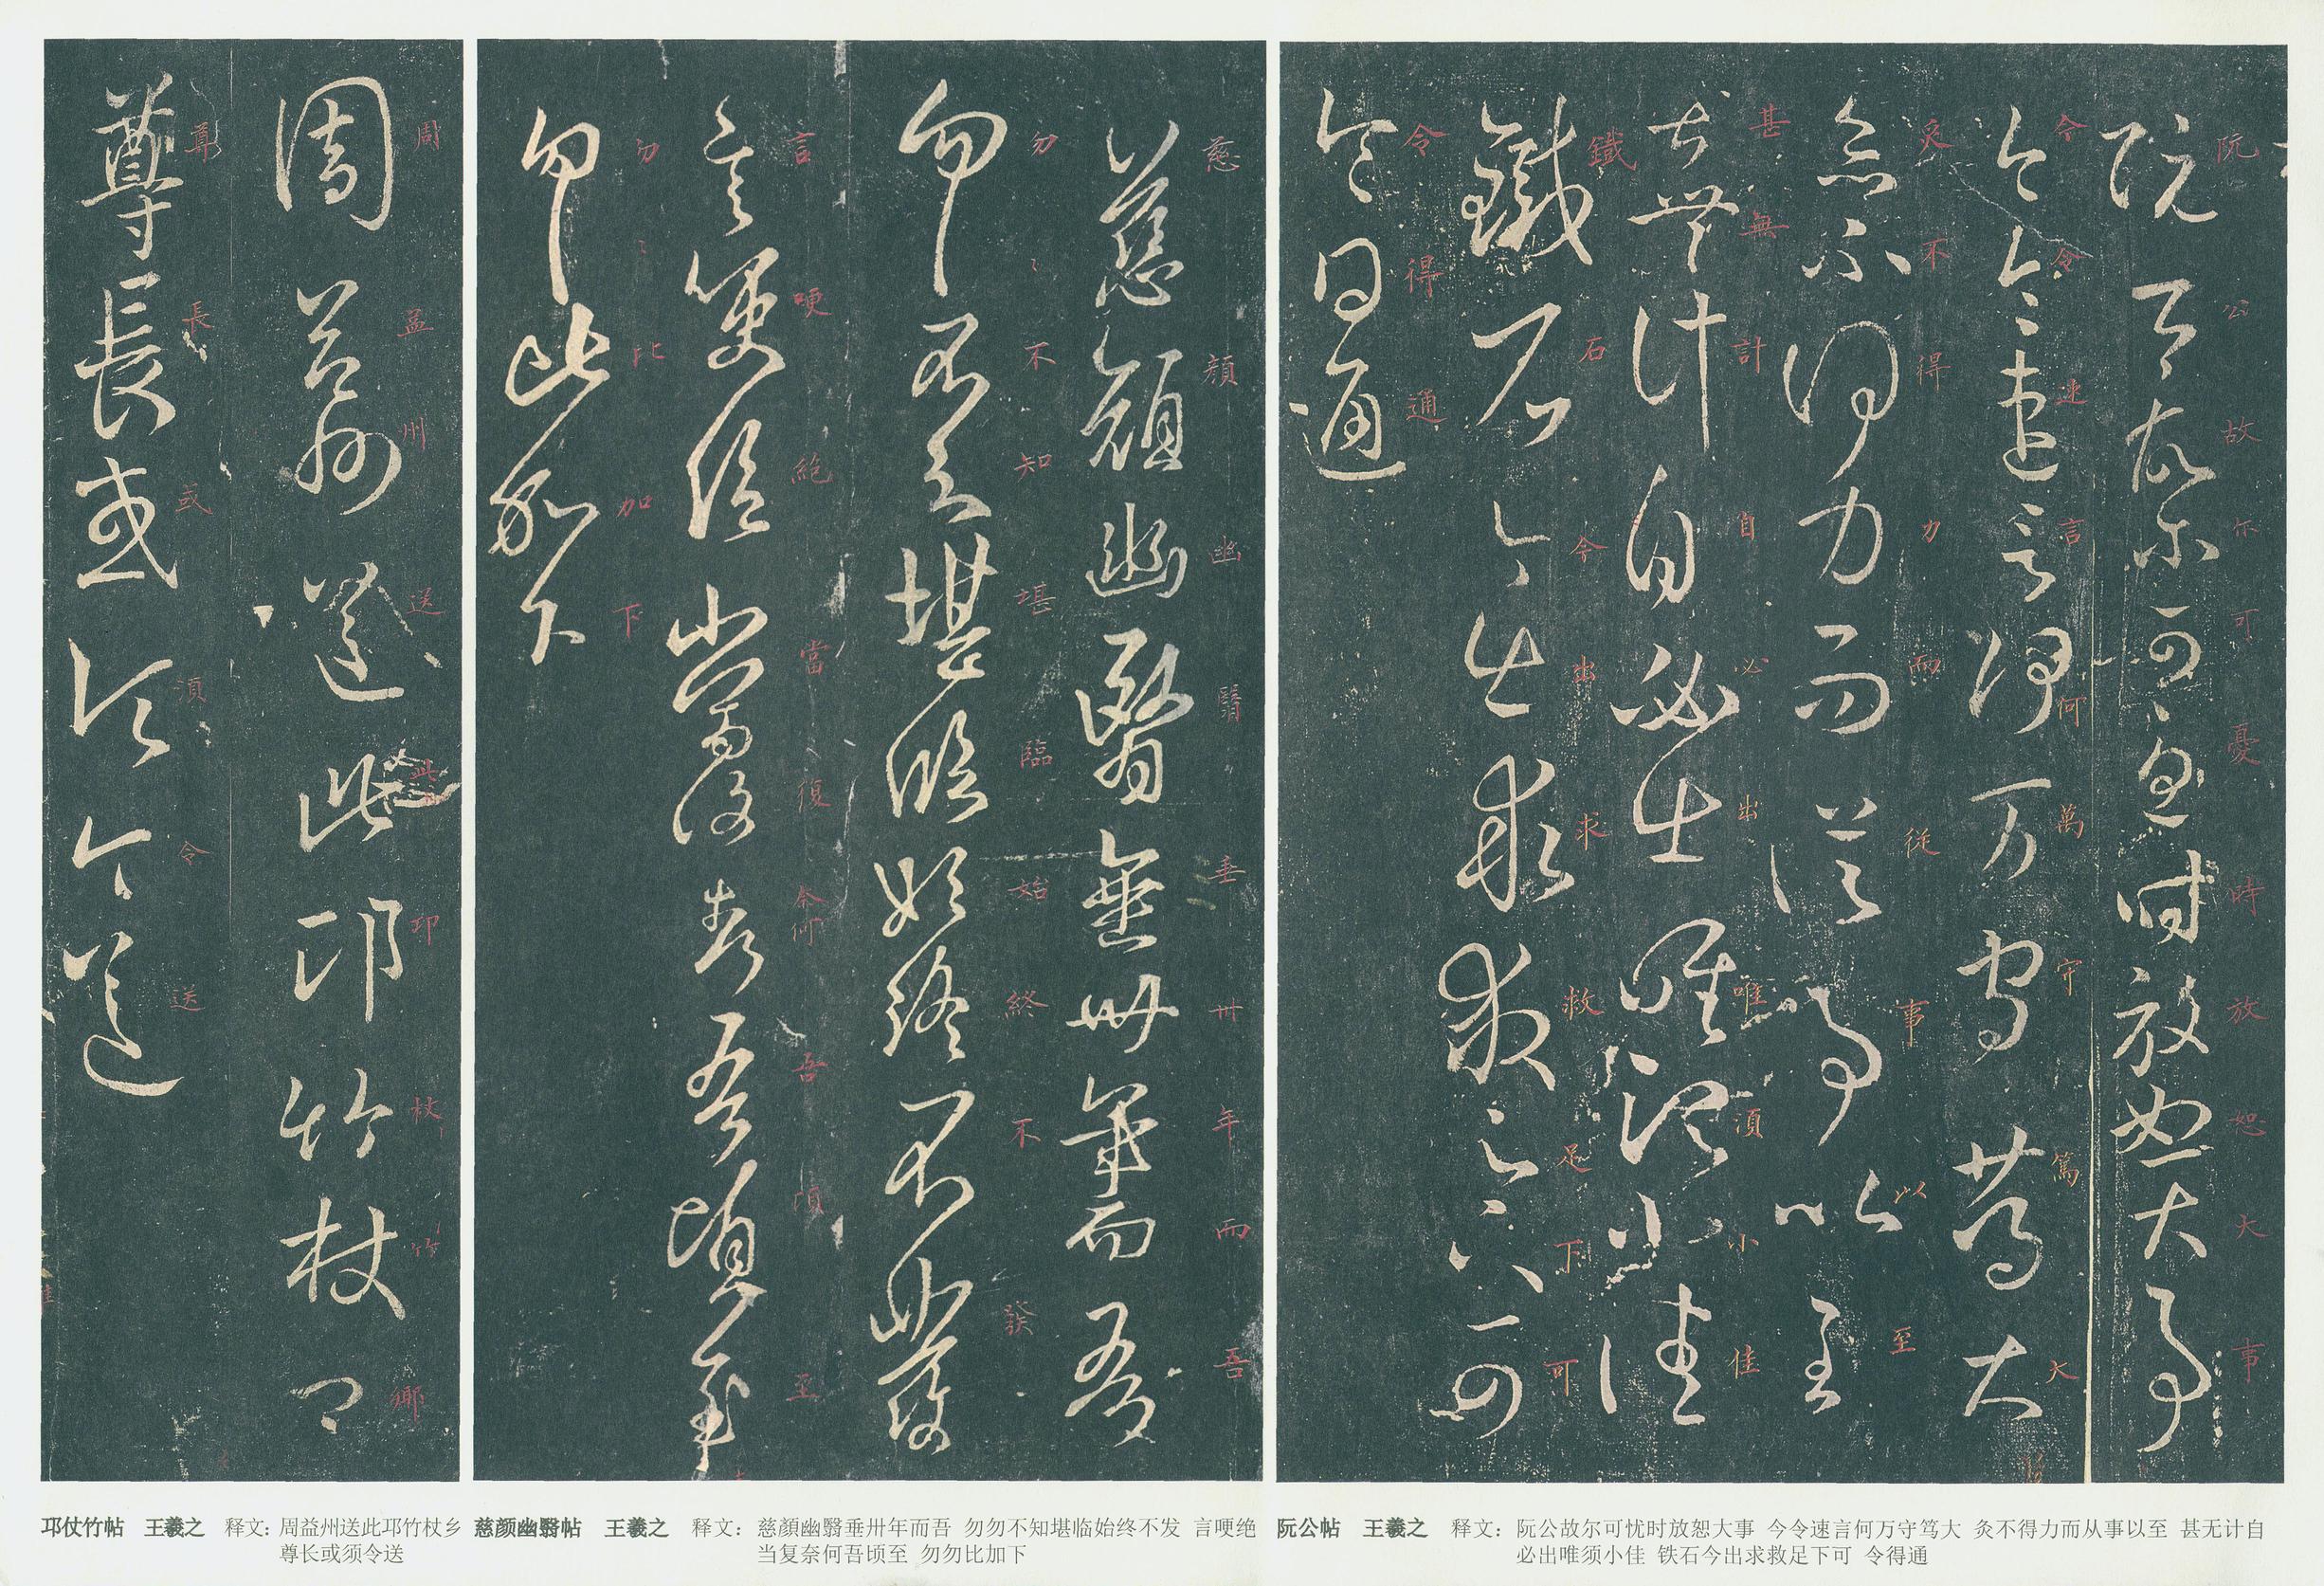 阮公故尔可憂時放恕大事
今令速言何万守篤大
灸不得力而從事以至
甚無計自必出唯須小佳
鐵石今出求救足下可
令得通
阮公帖 王羲之 释文：阮公故尔可忧时放恕大事 今令速言何万守笃大 灸不得力而从事以至 甚无计自
必出唯须小佳 铁石今出求救足下可 令得通
慈顏幽翳垂卅年而吾
勿勿不知堪臨始終不發
言哽絕當復奈何吾頃至
勿勿比加下
慈颜幽翳帖 王羲之 释文：慈顔幽翳垂卅年而吾 勿勿不知堪临始终不发 言哽绝
当复奈何吾顷至 勿勿比加下
周益州送此邛竹杖卿
尊長或須令送
邛仗竹帖 王羲之 释文：周益州送此邛竹杖乡
尊长或须令送